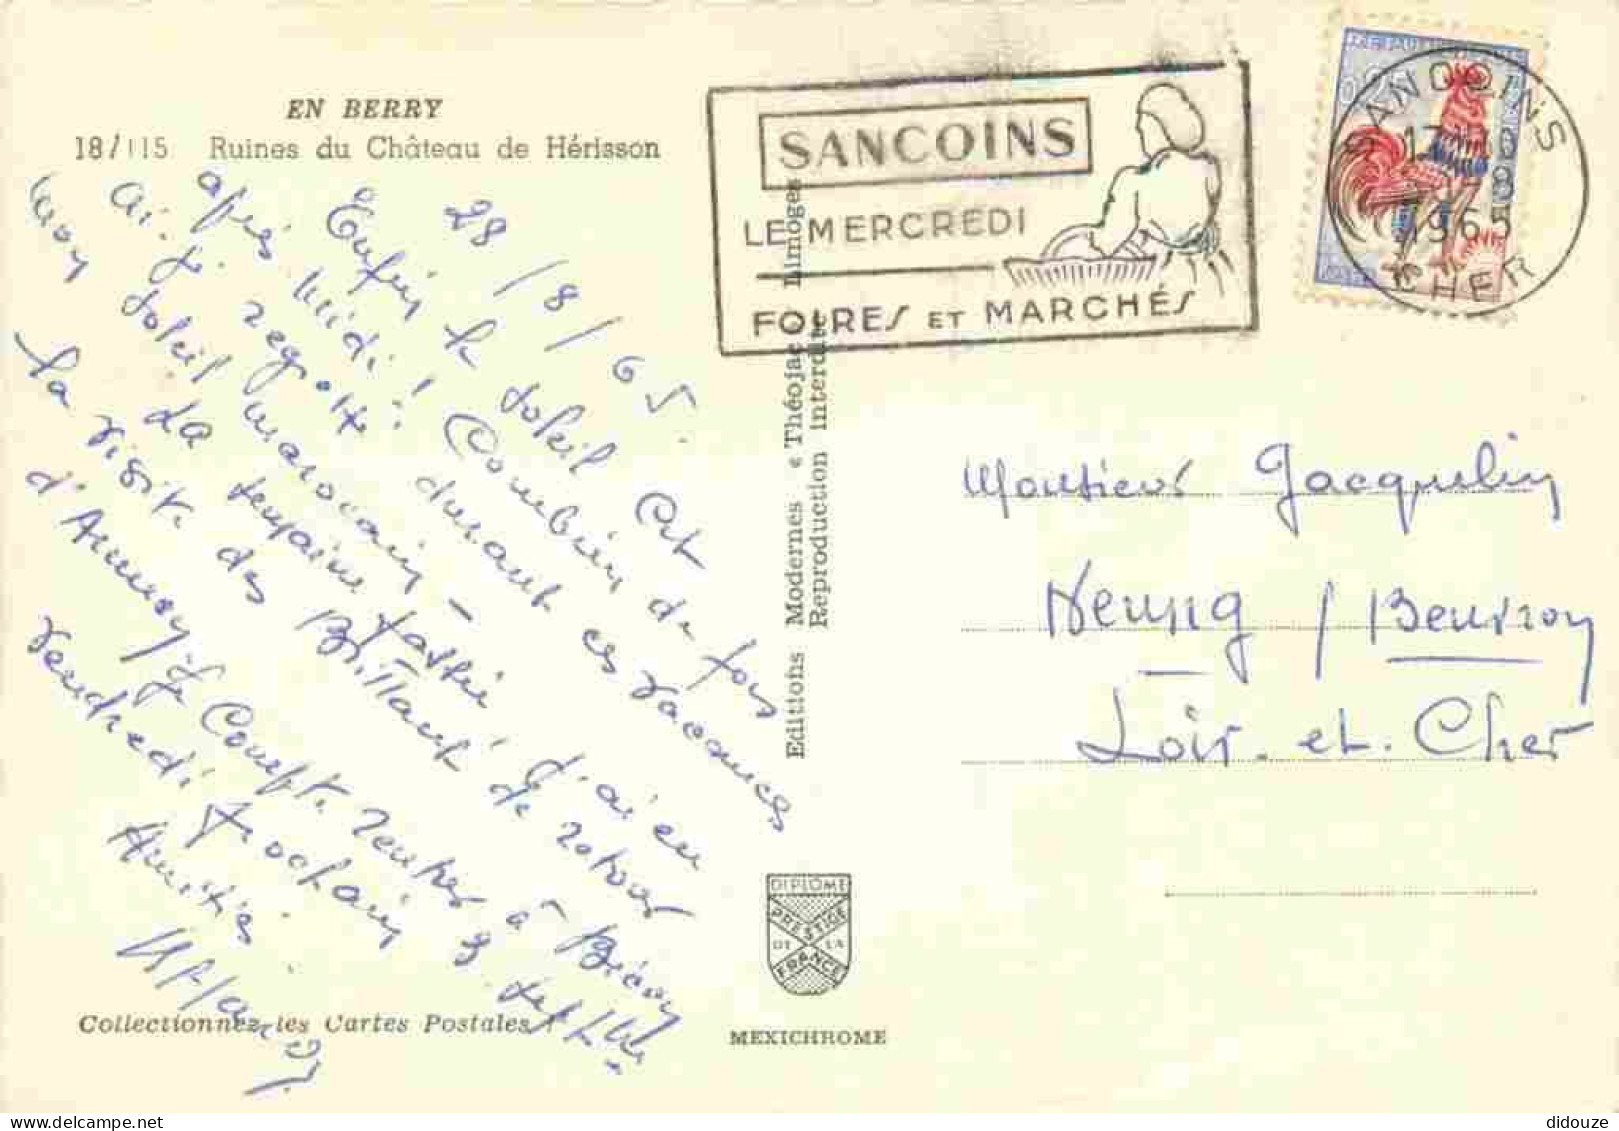 EN BERRY
18/115 Ruines du Château de Hérisson
28/8/65.
Enfin le soleil cet
après midi ! Combien de fois
ai-je regretté durant ces vacances
mon soleil marocain -
La semaine passée j'ai eu
la visite des Brillant de retour
d'Annecy. Je compte rentrer à
vendredi prochain 3 sept
Amitiés
Collectionnez les Cartes Postales !
Editions Modernes « Théojac » Limoges
Reproduction interdite
DIPLOME
PRESTIGE
DE LA
FRANCE
MEXICHROME
SANCOINS
LE MERCREDI
FOIRES ET MARCHÉS
SANCOINS
1965
CHER
Monsieur Jacquelin
Neung / Beuvron
Loir-et-Cher
didouze